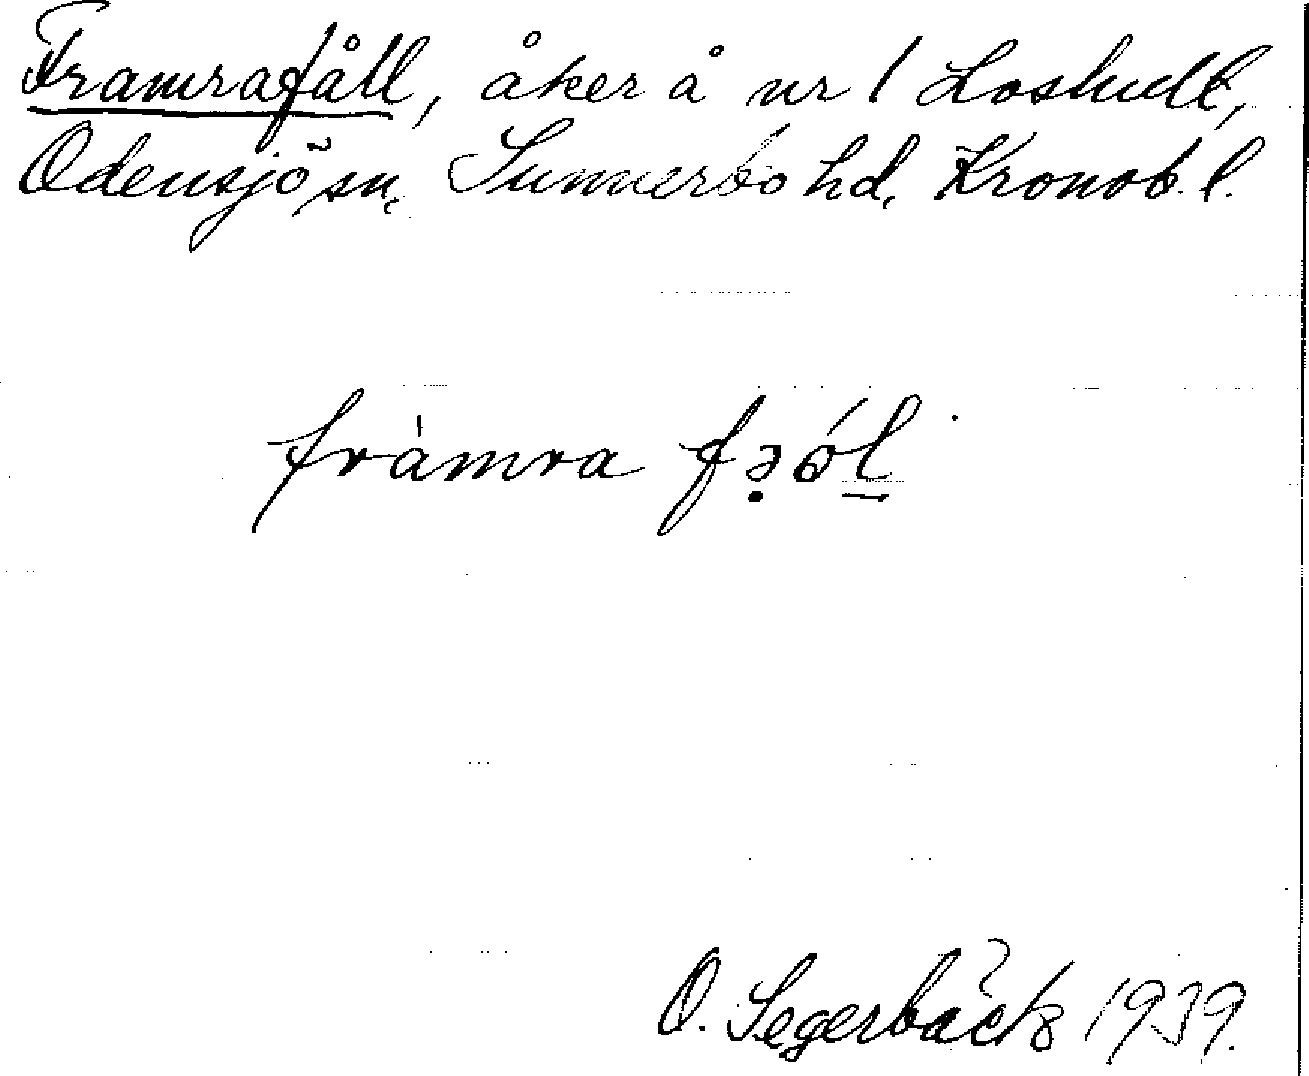 Framrafåll, åker å nr 1 Loshult,
Odensjö sn, Sunnerbo hd, Kronob. l.
fràmra fə̣ól̲
O. Segerbäck 1939.